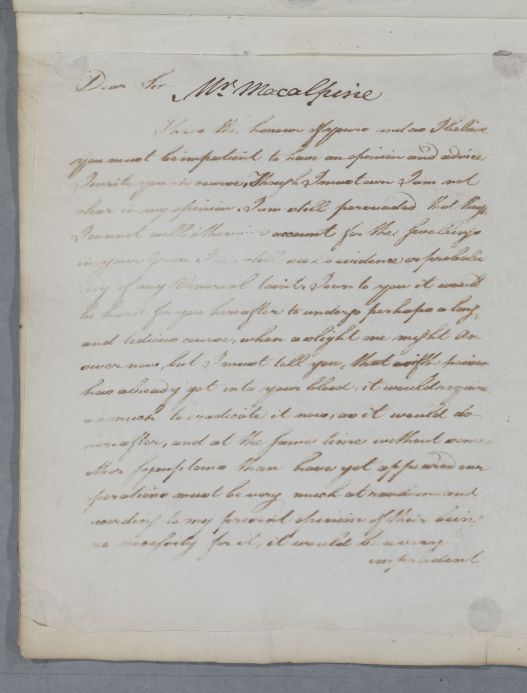 Dear Sir Mr. Macalpine
I have the honour of yours and as I believe
you must be impatient to have an opinion and advice
I write you in course, Though I must own I am not
clear in my opinion. I am still perswaded that tho
I cannot well otherwise account for the swellings
in your Groin evidence or probabi
lity of any Venereal taint. I own to you it would
be hard for you hereafter to undergo perhaps a long
and tedious course, when a slight one might An
swer now, but I must tell you, that if the poison
has already got into your blood, it would require
as much to eradicate it now, as it would do
hereafter, and at the same time without some
other Symptoms than have yet appeared our
operations must be very much at random and
according to my present opinion of their being
no necessity for it, it would be a very
imprudent